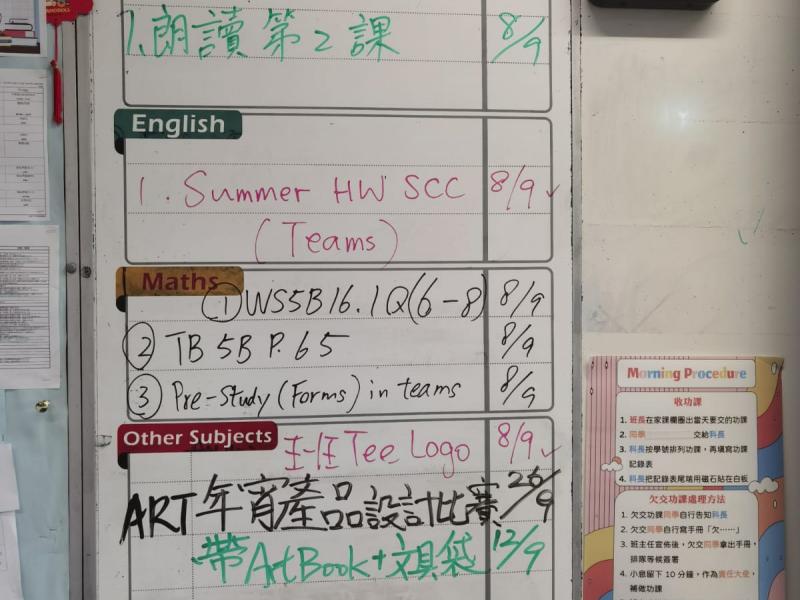 7. 朗讀第2課 8/9
English
1. Summer HW SCC 8/9 ✓
(Teams)
Maths
① WS5B16.1Q(6-8) 8/9
② TB 5B P.65 8/9
③ Pre-study (Forms) in teams 8/9
Other Subjects
Tee Logo 8/9 ✓
ART 年宵產品設計比賽 26/9
帶 ArtBook + 文具袋 12/9
Morning Procedure
收功課
1. 班長在家課欄圈出當天要交的功課
2. 同學 交給科長
3. 科長按學號排列功課，再填寫功課
記錄表
4. 科長把記錄表尾端用磁石貼在白板
欠交功課處理方法
1. 欠交功課同學自行告知科長
2. 欠交同學自行寫手冊「欠⋯⋯」
3. 班主任宣佈後，欠交同學拿出手冊，
排隊等候簽署
4. 小息留下 10 分鐘，作為責任大使，
補做功課